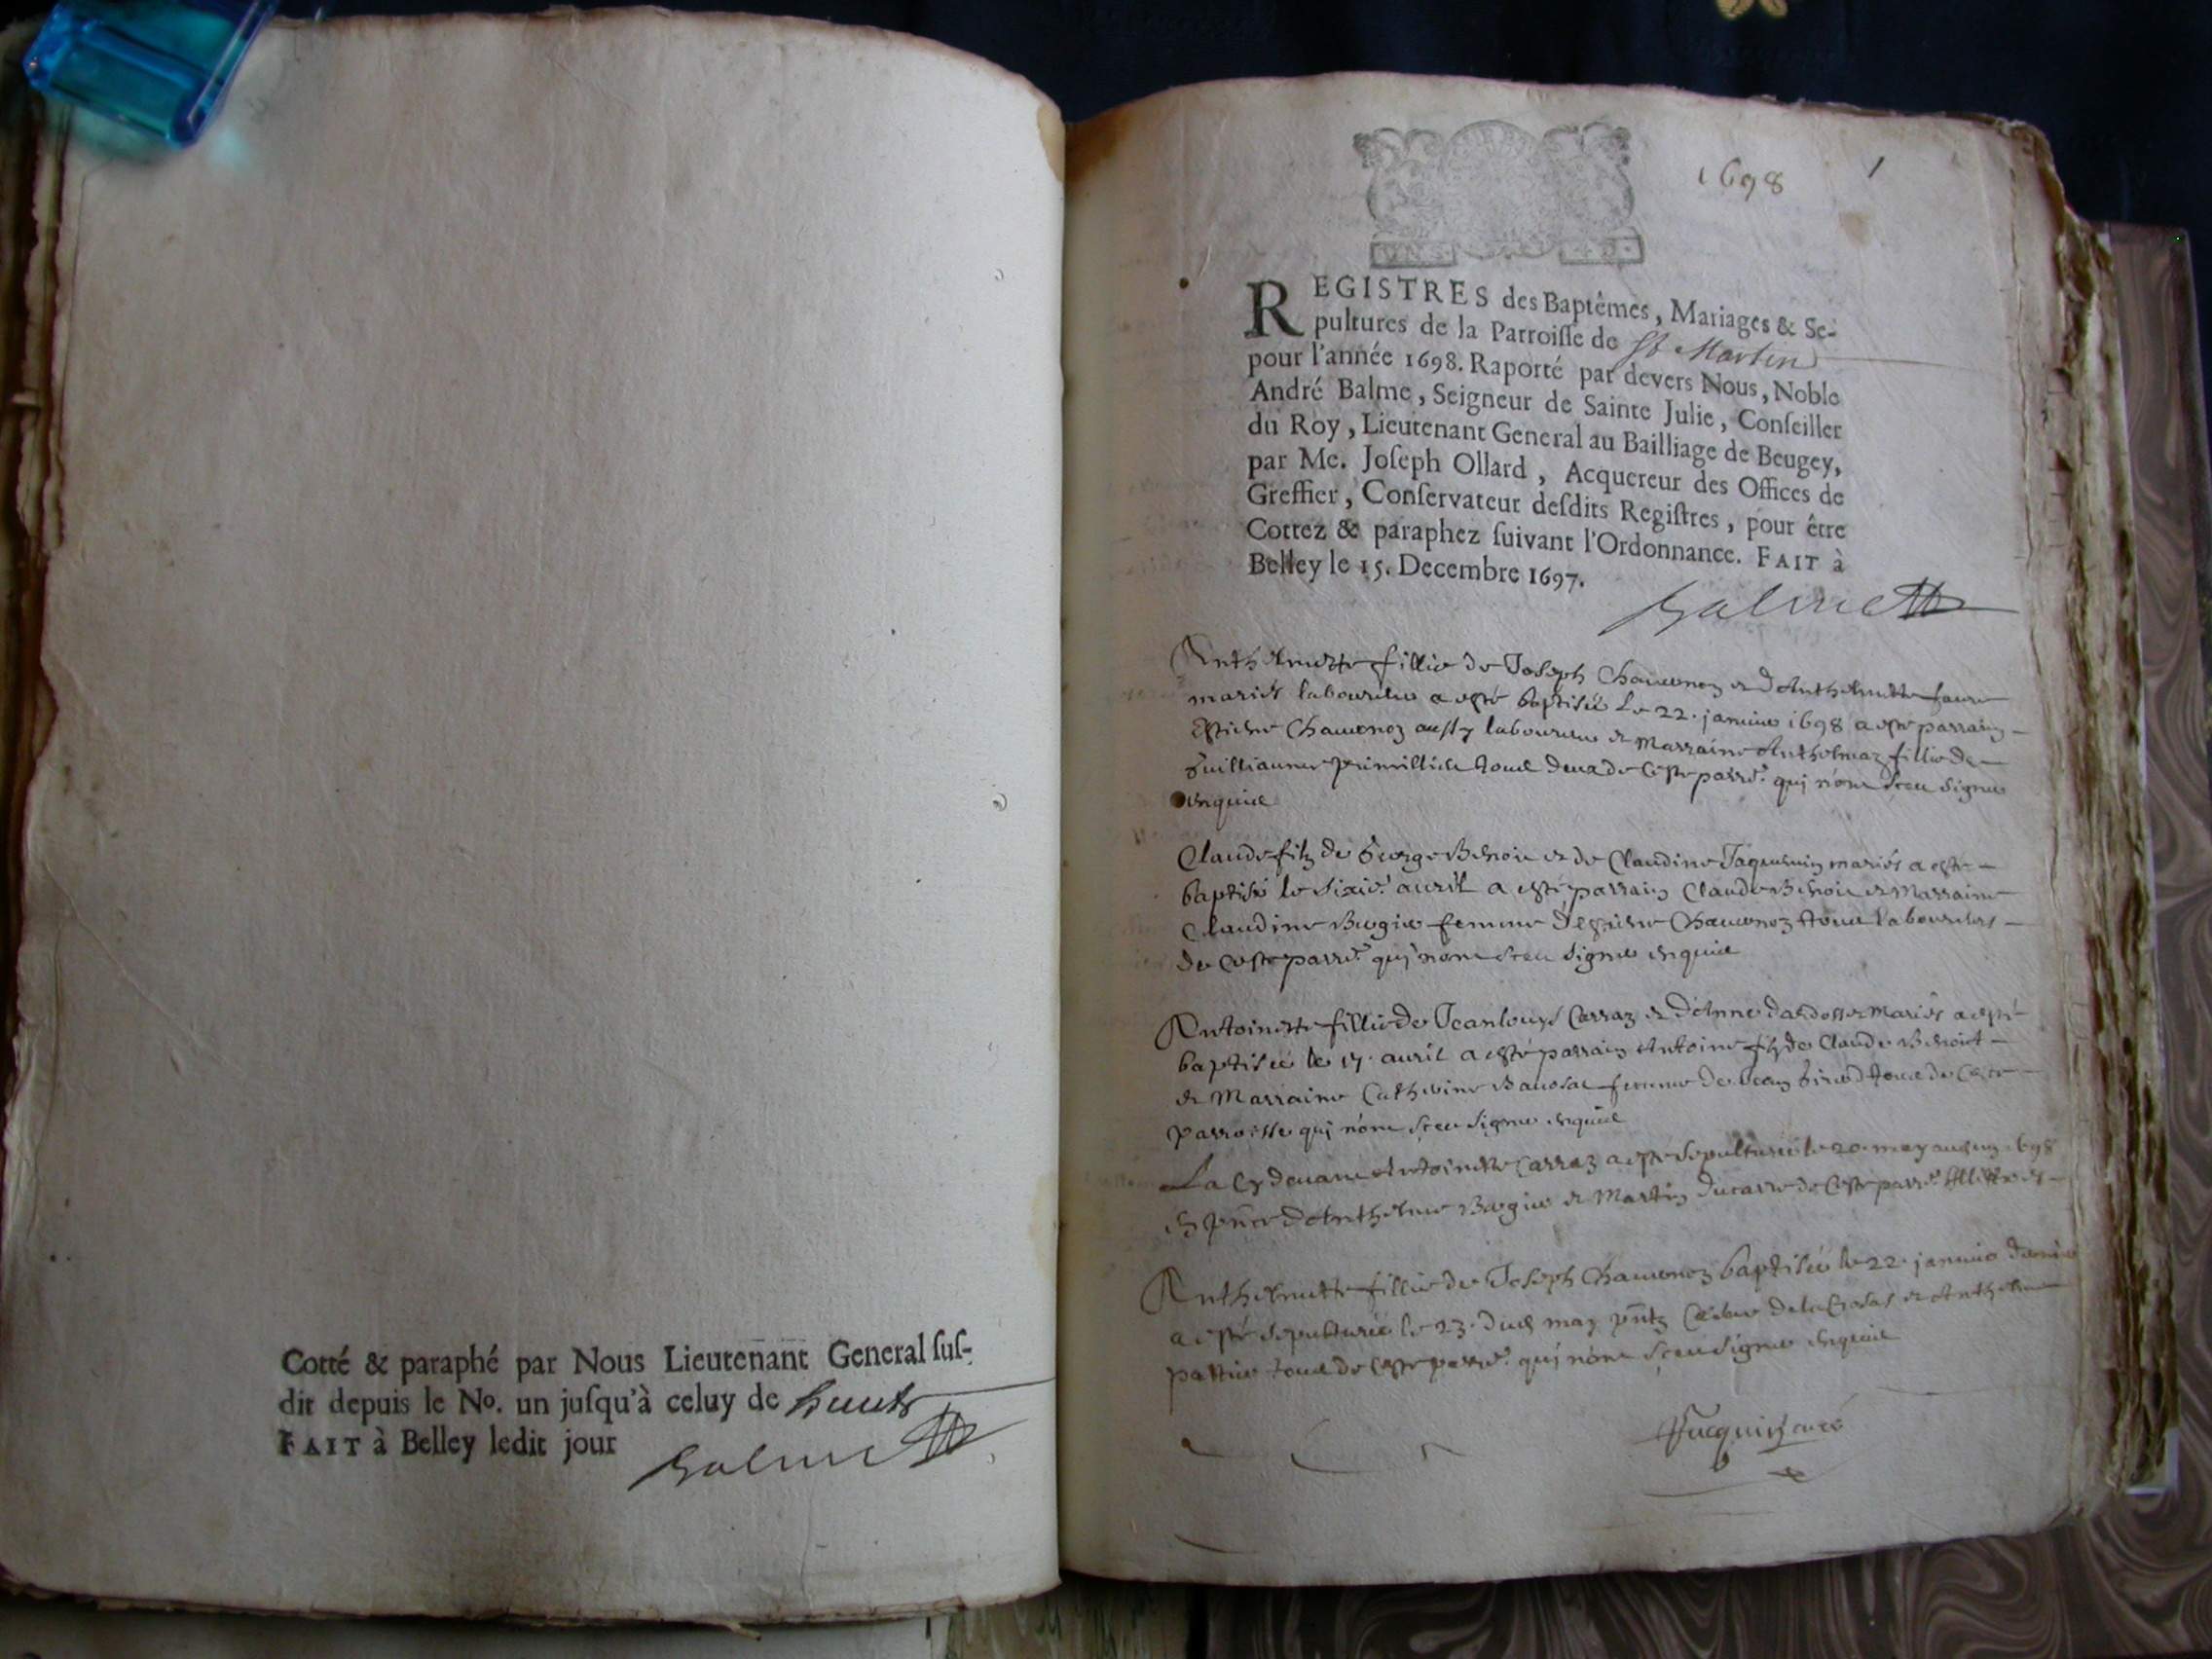 Cotté & paraphé par Nous Lieutenant General sus-
dit depuis le No. un jusqu'à celuy de huict
FAIT à Belley ledit jour
Balme
1698 1
REGISTRES des Baptêmes, Mariages & Se-
pultures de la Parroisse de St Martin
pour l'année 1698. Raporté par devers Nous, Noble
André Balme, Seigneur de Sainte Julie, Conseiller
du Roy, Lieutenant General au Bailliage de Beugey,
par Me. Joseph Ollard, Acquereur des Offices de
Greffier, Conservateur desdits Registres, pour être
Cottez & paraphez suivant l'Ordonnance. FAIT à
Belley le 15. Decembre 1697.
Balme
Anthelmette fillie de Joseph Chauuonoz et d'Anthelmette faure
mariés laboureurs a esté baptisée le 22. januier 1698 a esté parrain
Estiene Chauuonoz aussy laboureur et Marraine Anthelmaz fillie de
Guilliaume tous deux de ceste parre. qui n'ont sceu signer
enquis
Claude filz de George Benoit et de Claudine Jaquemin mariés a esté
baptisé le sixie. auril a esté parrain Claude Benoit et Marraine
Claudine Bugie femme d'estiene Chauuonoz tous laboureurs
de ceste parre. qui n'ont sceu signer enquis
Antoinette fillie de Jean louys Carraz et d'Anne mariés a esté
baptisée le 17. auril a esté parrain Antoine filz de Claude Benoit
et Marraine Catherine femme de Jean tous de ceste
parroisse qui n'ont sceu signer enquis
La cy deuant Antoinette Carraz a esté sepulturée le 20. may 1698
en pnce d'Anthelme Bugie et Martin de ceste parre. Illittrés
Anthelmette fillie de Joseph Chauuonoz baptisée le 22. januier dernier
a esté sepulturée le 23. dud may pntz et Anthelme
tous de ceste parre. qui n'ont sceu signer enquis
curé